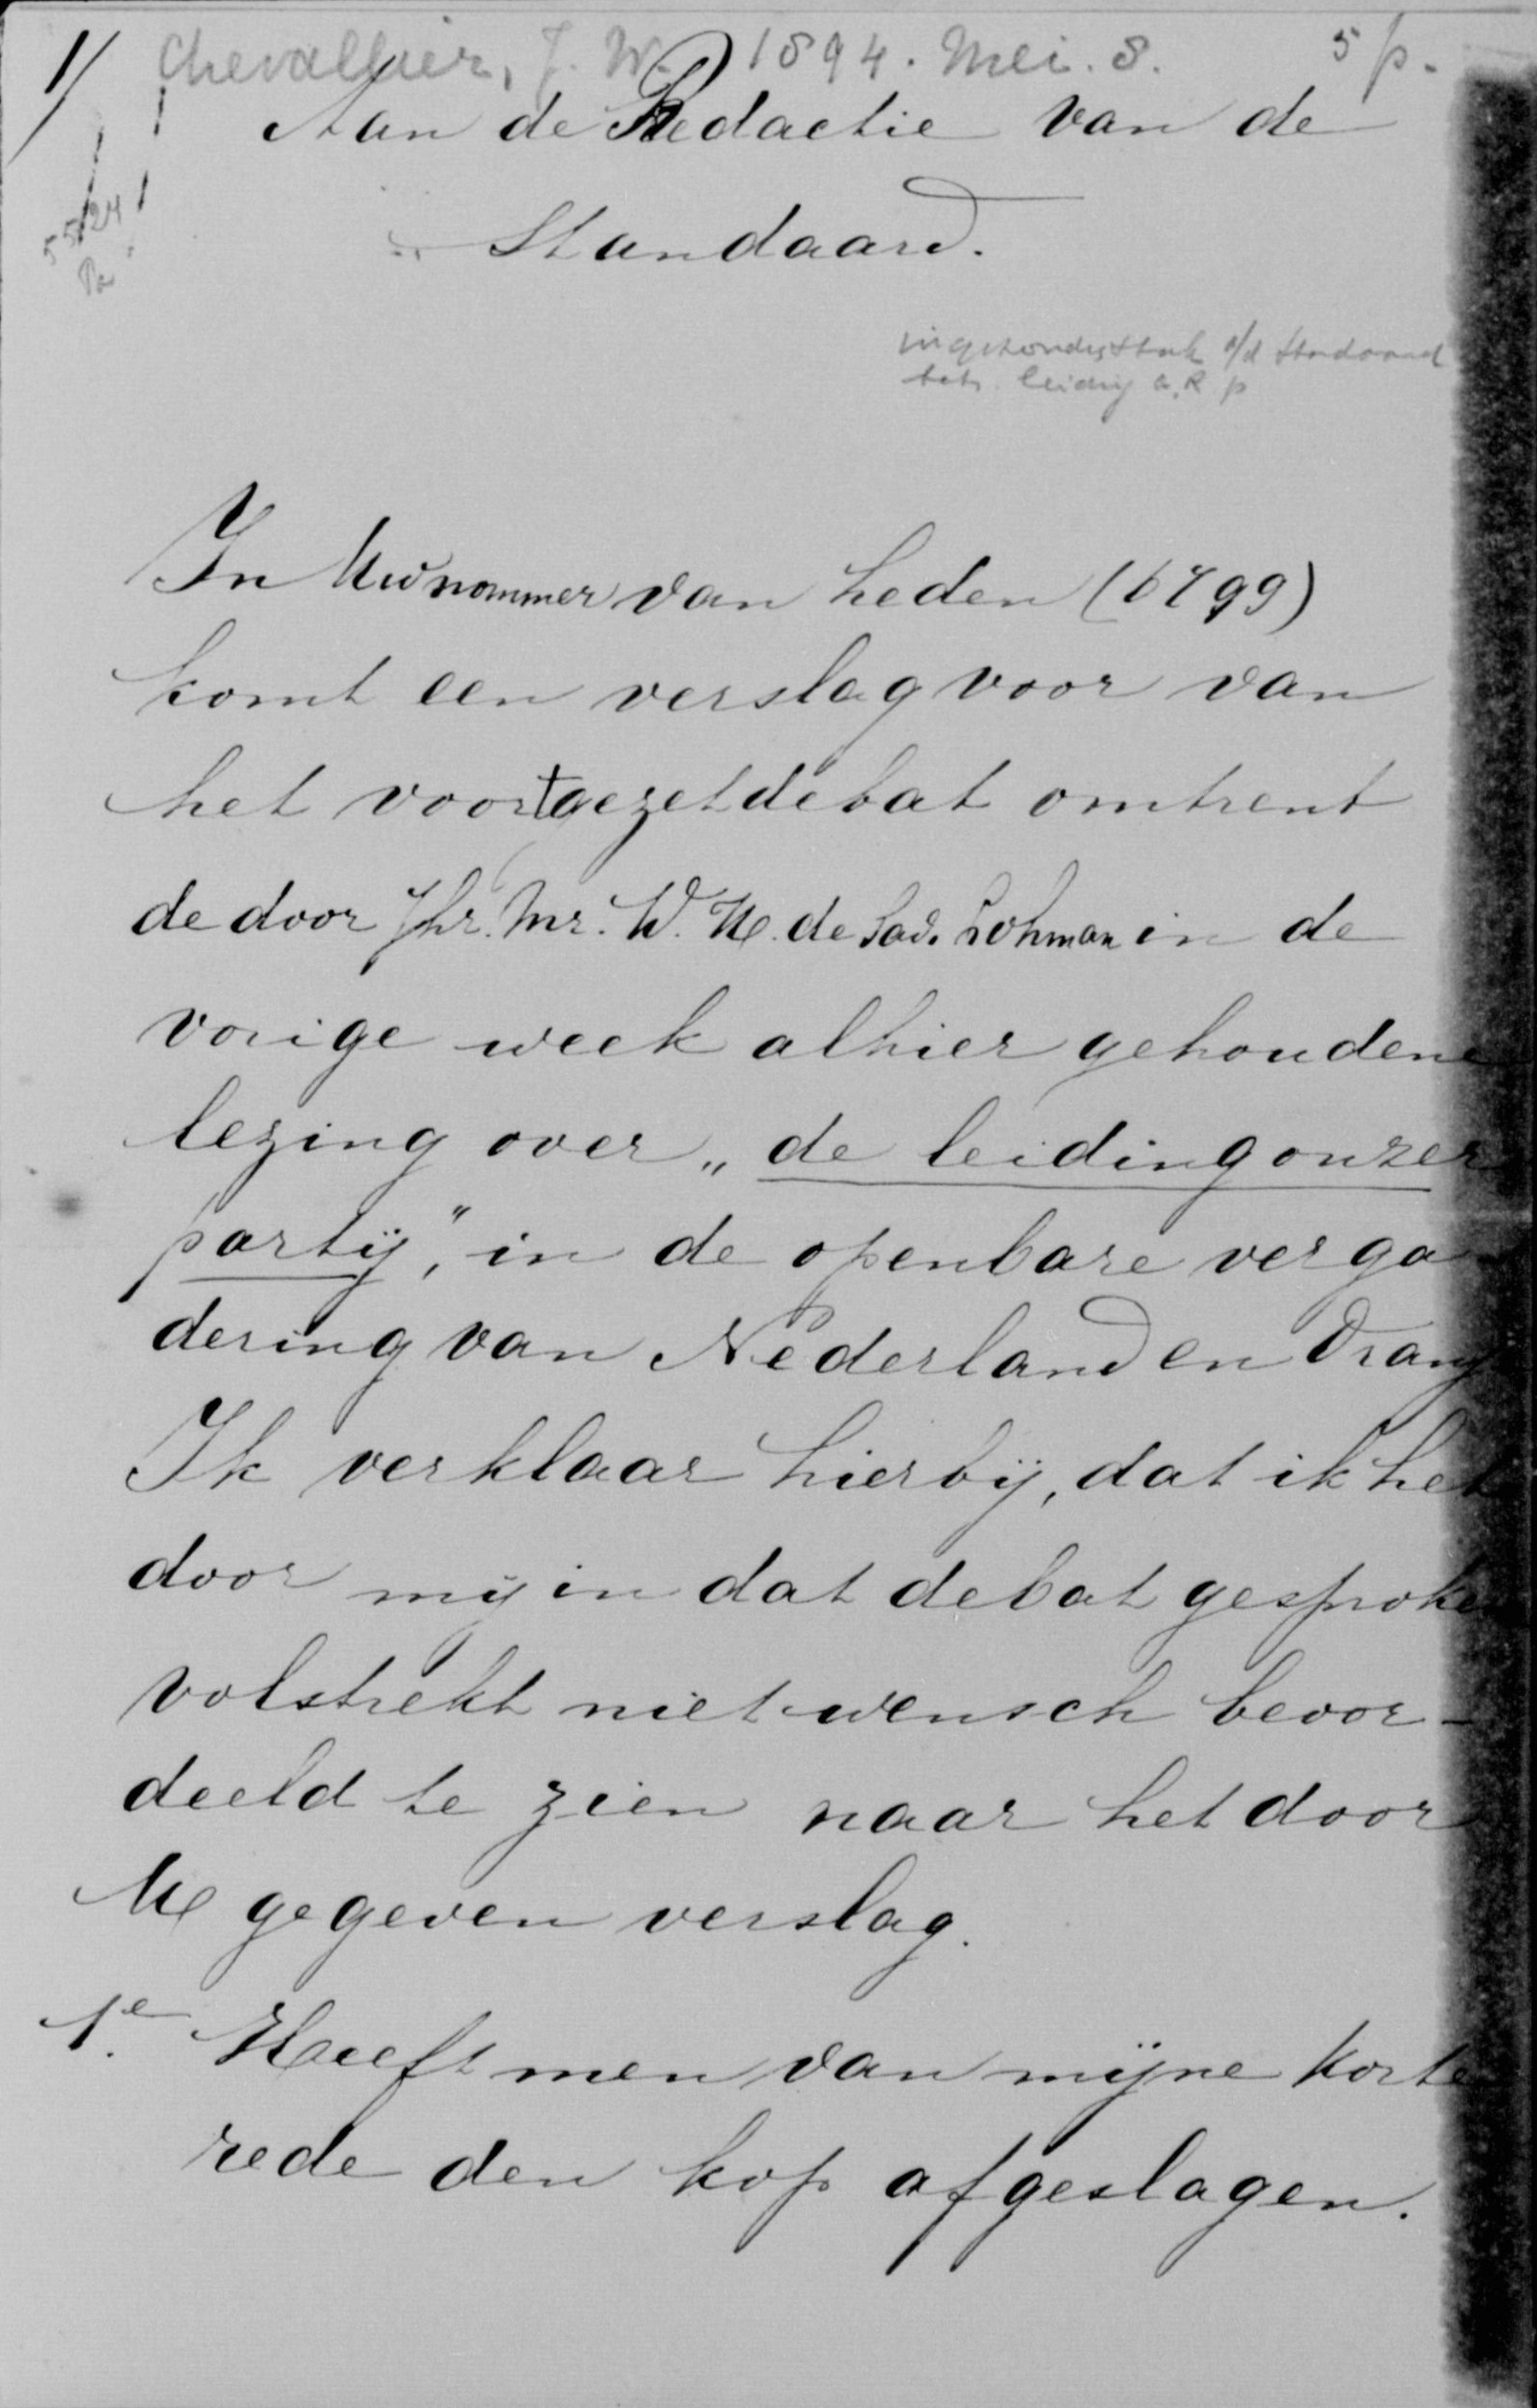 1/ Chevallier, J. W. 1894. Mei. 8. 5 p.
Aan de Redactie van de
Standaard.
5524
ingezonden stuk a/d Standaard
betr. leiding A. R. p
In Uw nommer van heden (6799)
komt een verslag voor van
het voortgezet debat omtrent
de door Jhr. Mr. W. H. de Sav. Lohman in de
vorige week alhier gehoudene
lezing over „de leiding onzer
partij", in de openbare verga
dering van Nederland en Oranj
Ik verklaar hierbij, dat ik het
door mij in dat debat gesproke
volstrekt niet wensch beoor-
deeld te zien naar het door
U gegeven verslag.
1e. Heeft men van mijne korte
rede den kop afgeslagen.